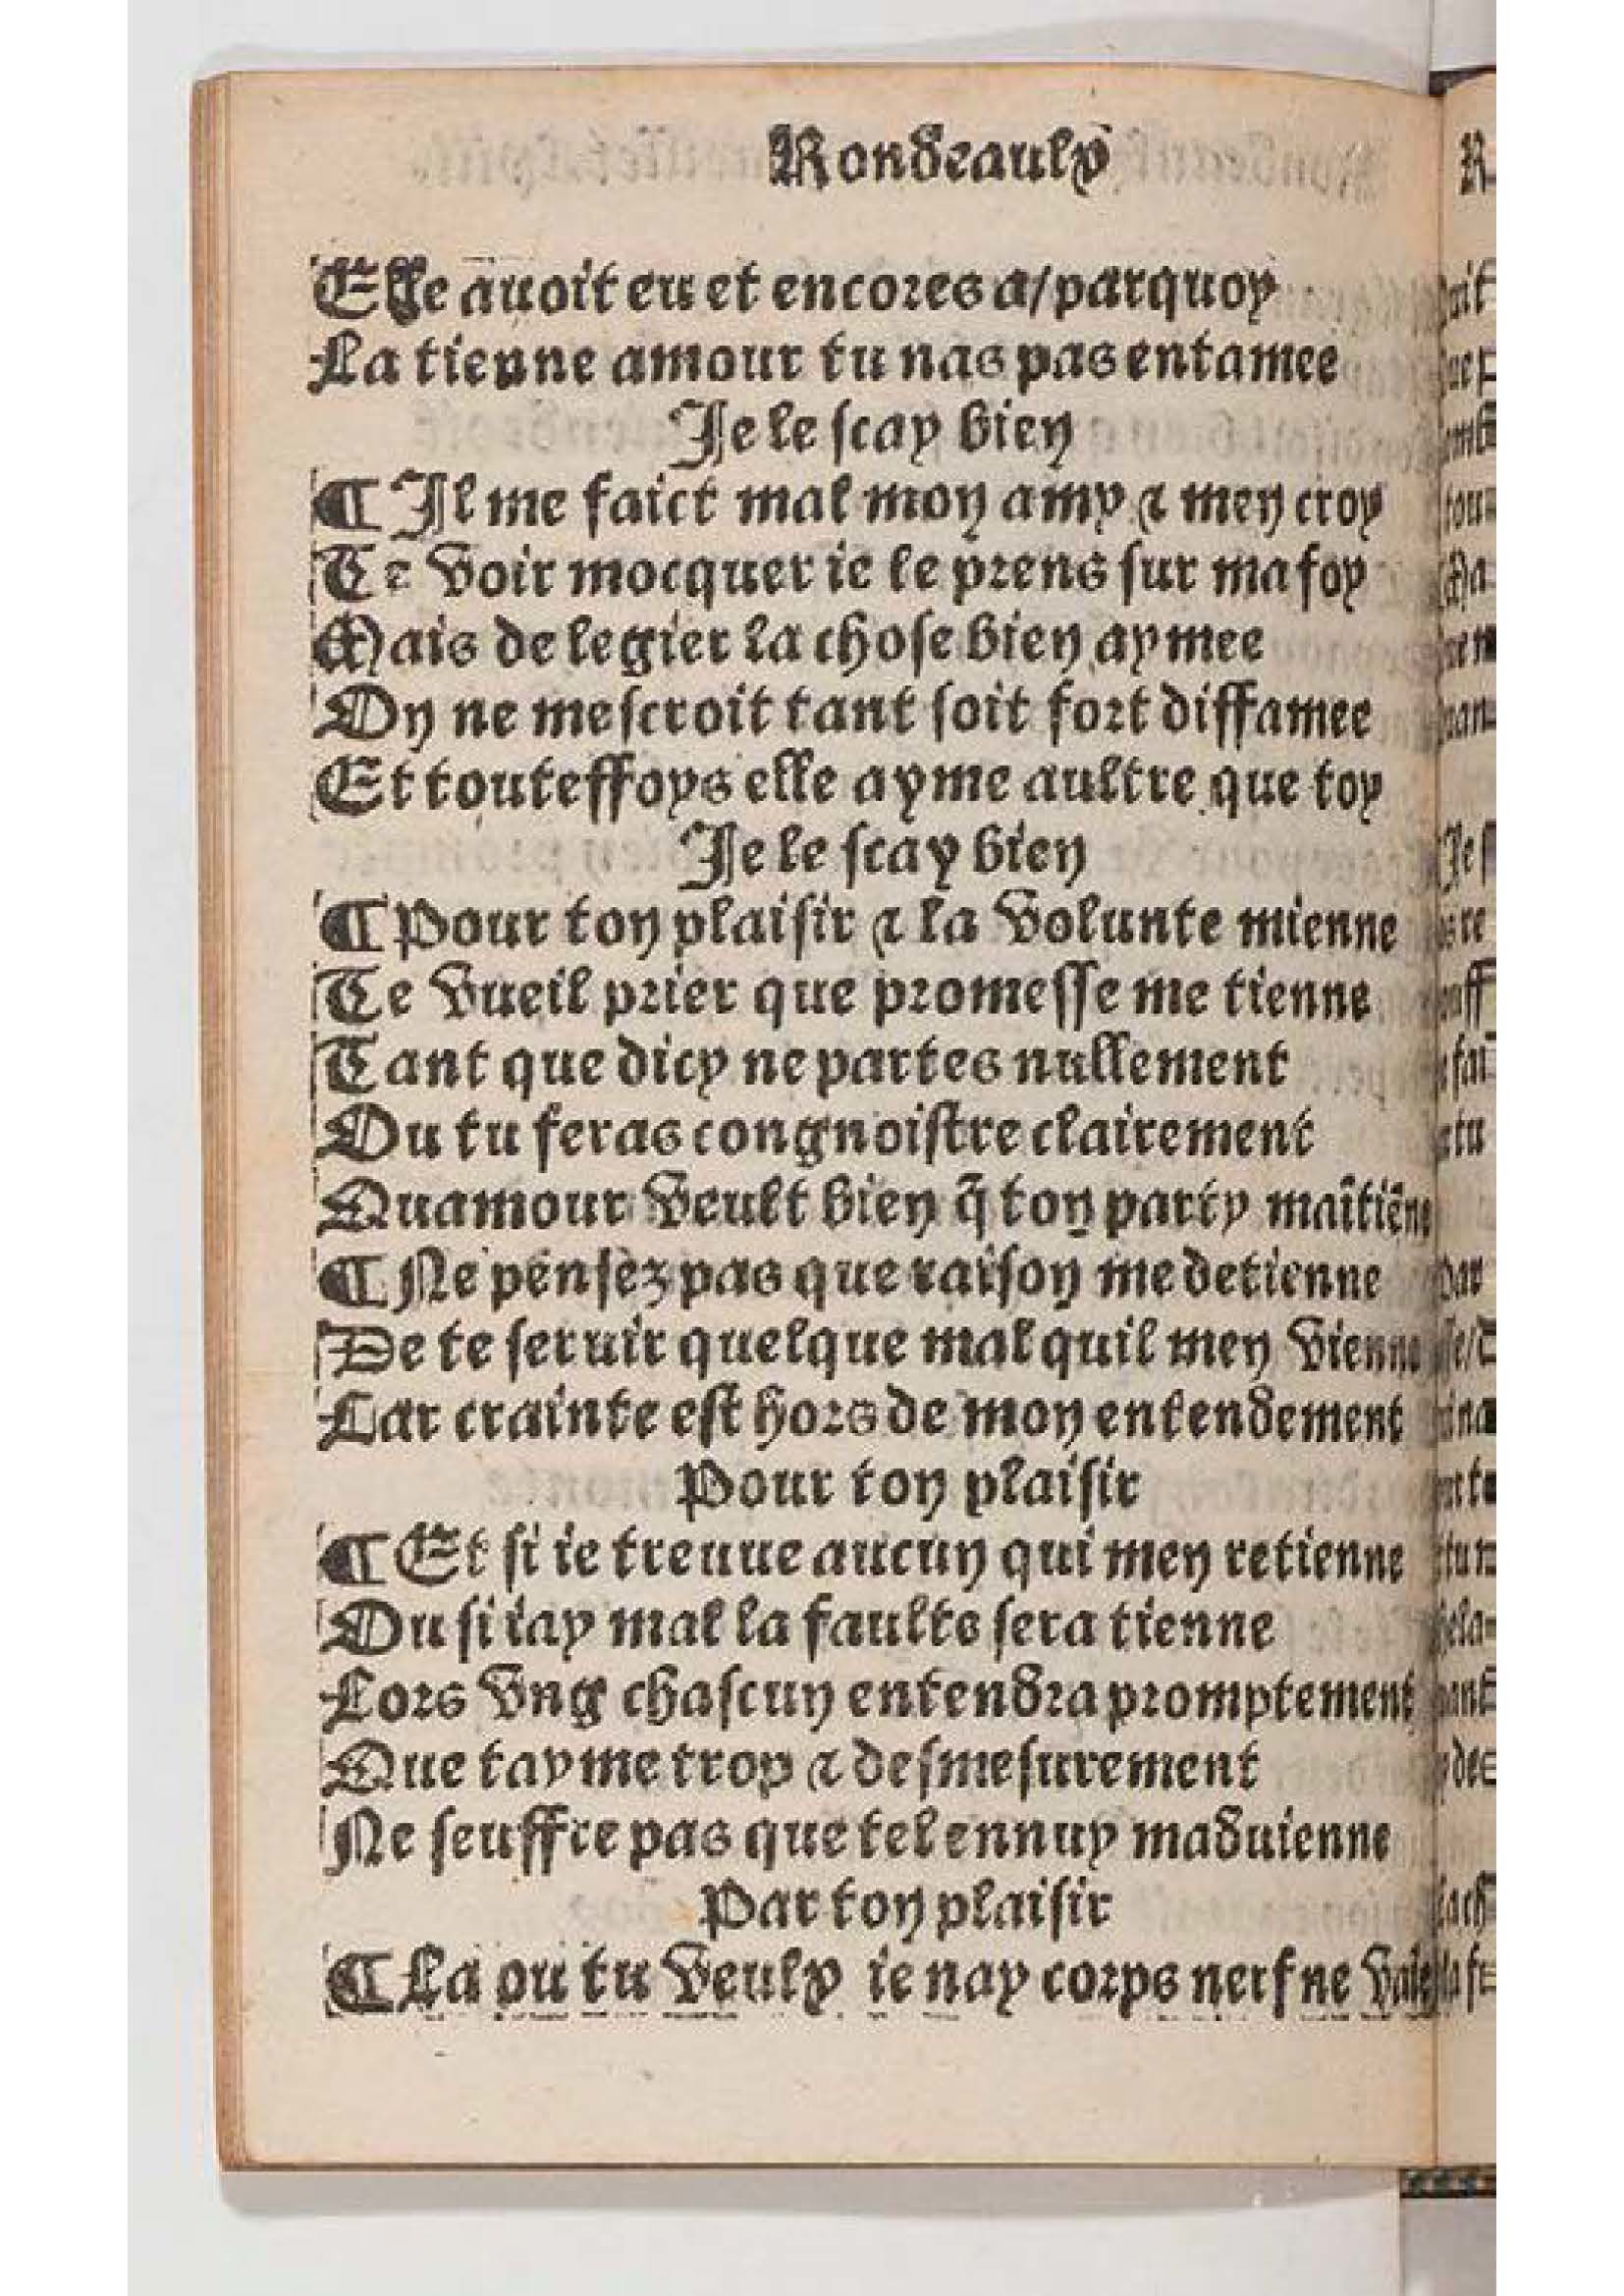 Rondeaulx
Elle auoit eu et encores a/parquoy
La tienne amour tu nas pas entamee
Je le scay bien
¶ Il me faict mal mon amy & men croy
Te voir mocquer ie le prens sur ma foy
Mais de legier la chose bien aymee
On ne mescroit tant soit fort diffamee
Et touteffoys elle ayme aultre que toy
Je le scay bien
¶ Pour ton plaisir & la volunte mienne
Te vueil prier que promesse me tienne
Tant que dicy ne partes nullement
Ou tu feras congnoistre clairement
Quamour veult bien q̃ ton party maĩtiẽne
¶ Ne pensez pas que raison me detienne
De te seruir quelque mal quil men vienne
Car crainte est hors de mon entendement
Pour ton plaisir
¶ Et si ie treuue aucun qui men retienne
Ou si iay mal la faulte sera tienne
Lors vng chascun entendra promptement
Que tayme trop & desmesurement
Ne seuffre pas que tel ennuy maduienne
Par ton plaisir
¶ La ou tu veulx ie nay corps nerf ne